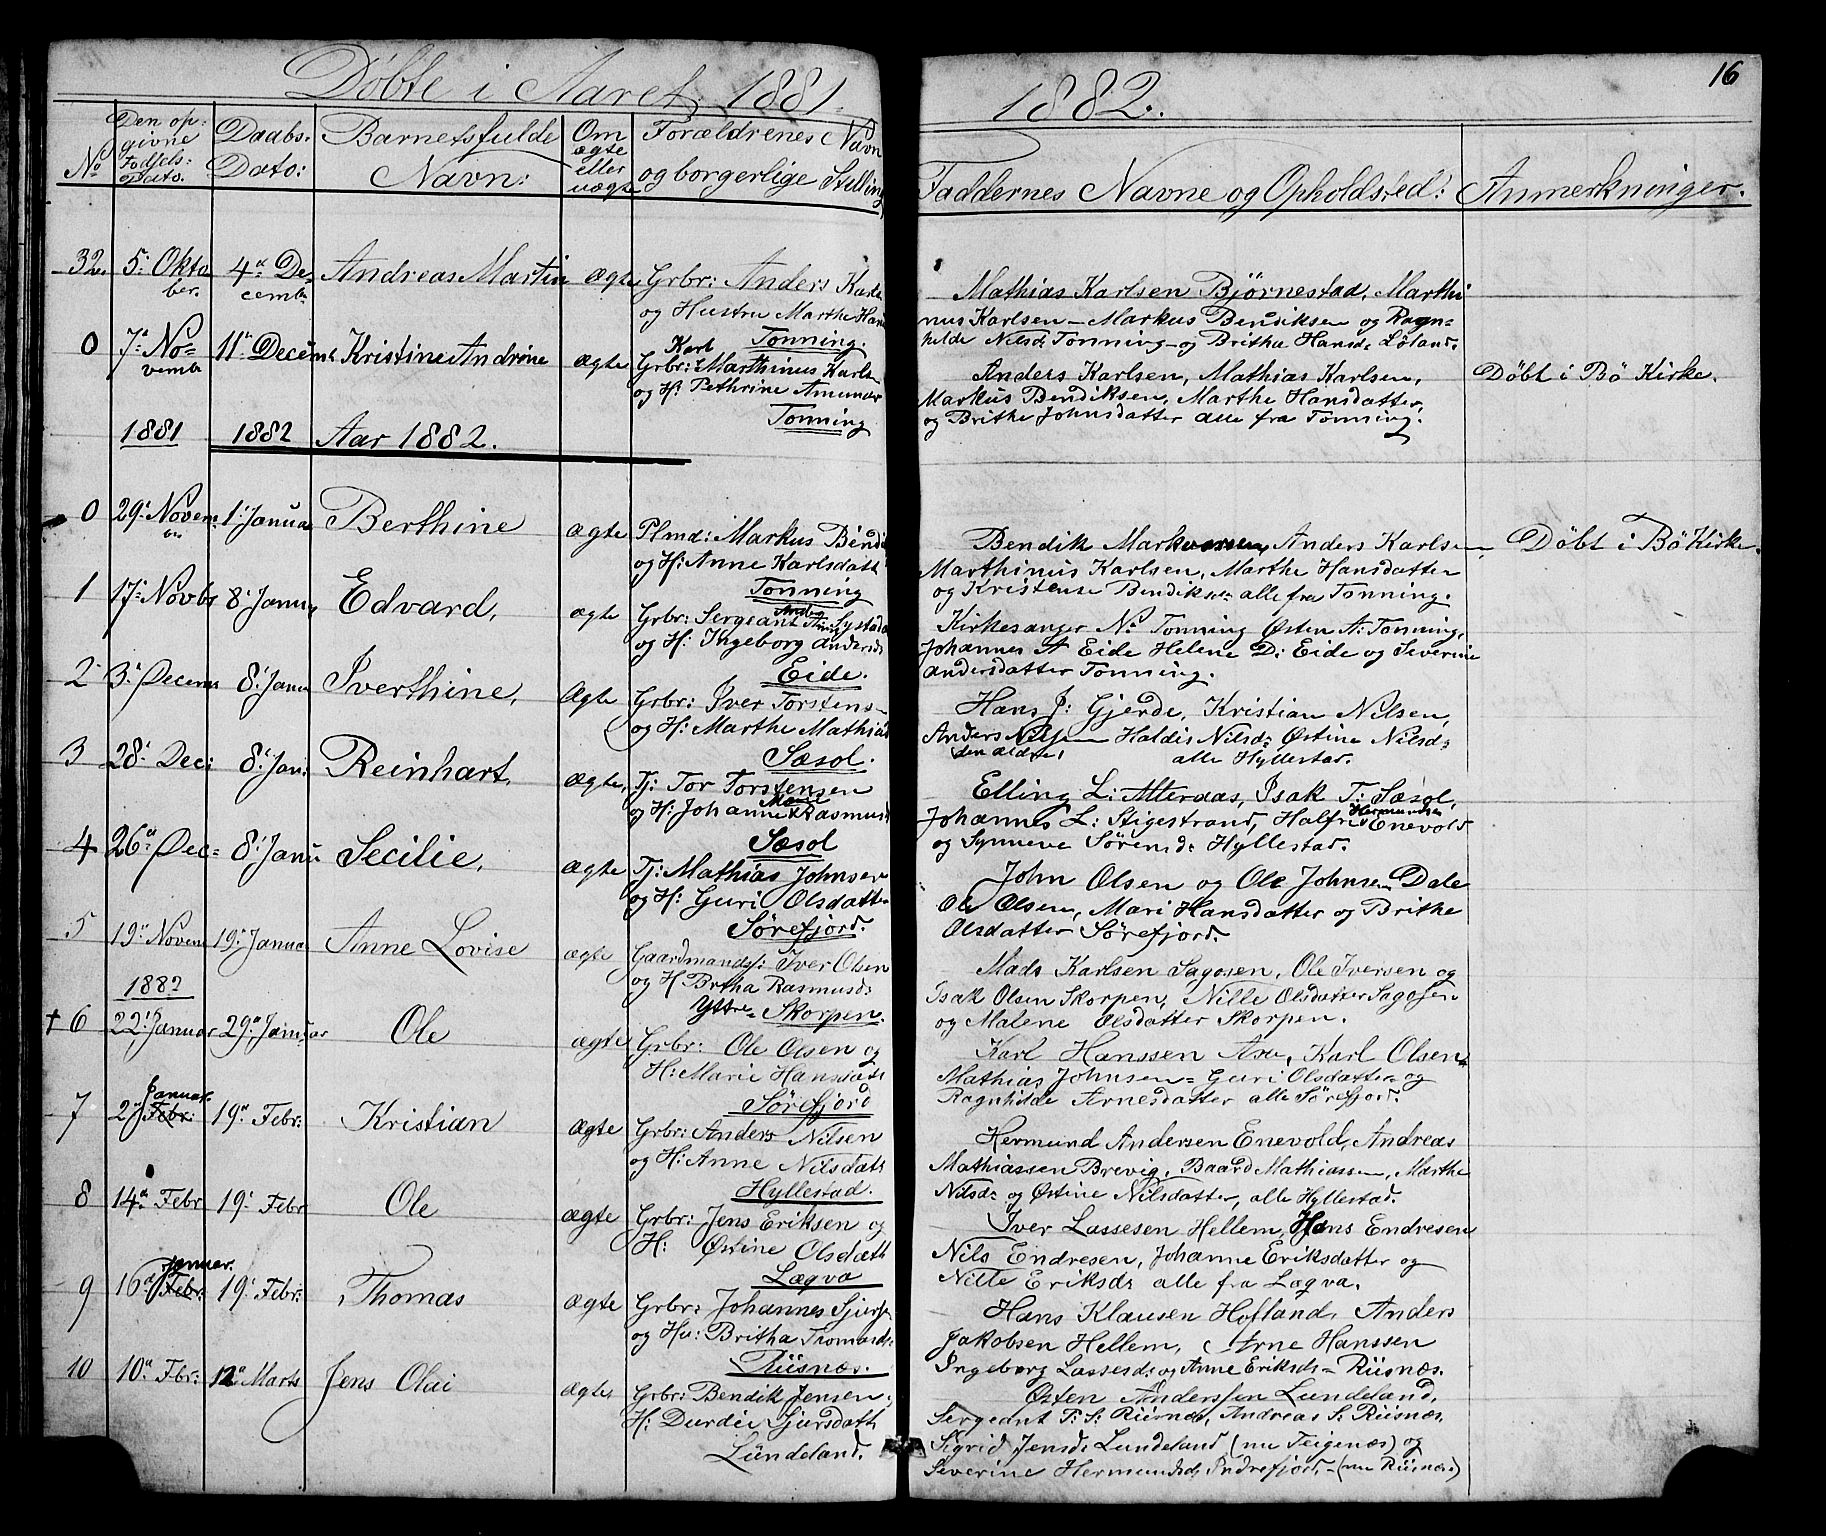 Døbte i Aaret 1881.
1882.
16
No
Den op-
givne
Fødsels-
Dato.
Daabs-
Dato:
Barnetsfulde
Navn:
Om
ægte
eller
uægte
Forældrenes Navn
og borgerlige Stilling
Faddernes Navne og Opholdsted:
Anmerkninger.
32. 5. Okto 4de De- Andreas Martin ægte Grbr: Anders Karls
ber. cemb. og Hustru Marthe Hans
Tonning.
Mathias Karlsen Bjørnestad, Marthi
nus Karlsen - Markus Bendiksen og Ragn-
hilde Nilsd: Tonning - og Brithe Hansd: Løland.
0 7. No- 11te Decem: Kristine Andrine ægte Karl
vemb. Grbr: Marthinus Karls-
og H: Pethrine Amundr
Tonning
Anders Karlsen, Mathias Karlsen,
Markus Bendiksen, Marthe Hansdatter,
og Brithe Johnsdatter alle fra Tonning.
Døbt i Bø Kirke.
1881 1882 Aar 1882.
0 29. Novem 1. Januar Berthine ægte Plmd: Markus Bendi
og H: Anne Karlsdatt
Tonning
Bendik Markussen, Anders Karlse-
Marthinus Karlsen, Marthe Hansdatter
og Kristense Bendiksd: alle fra Tonning.
Døbt i Bø Kirke.
1 17. Novbr 8. Janu Edvard, ægte Grbr: Sergeant Anders Systad
og H: Ingeborg Andersd
Eide.
Kirkesanger N. Tonning Østen A: Tonning,
Johannes A Eide Helene D: Eide og Severine
Andersdatter Tonning.
2 3. Decem 8. Janu Iverthine, Ægte Grbr: Iver Torstens-
og H: Marthe Mathiasd
Sæsol.
Hans J: Gjerde, Kristian Nilsen,
Anders Nilsen Haldis Nilsd: Østine Nilsd:
den ældre, alle Hyllestad.
3 28. Dec: 8. Jan: Reinhart, ægte, Tj: Tor Torstensen
og H: Johanne Marie Rasmusd
Sæsol
Elling L: Atterdaas, Isak T: Sæsol,
Johannes L: Stigestrand, Halfrid Hermundsen Enevold
og Synneve Sørensd: Hyllestad.
4 26de Dec: 8. Janu Secilie, ægte Tj: Mathias Johnsen
og H: Guri Olsdatt-
Sørefjord.
John Olsen og Ole Johnsen Dale
Ole Olsen, Mari Hansdatter og Brithe
Olsdatter Sørefjord.
5 19. Novem 19. Januar Anne Lovise ægte Gaardmandsf: Iver Olsen
og H Britha Rasmusd:
Yttre Skorpen.
Mads Karlsen Sagosen, Ole Iversen og
Isak Olsen Skorpen, Nille Olsdatter Sagosen
og Malene Olsdatter Skorpen.
1882
† 6 22. Januar 29. Januar Ole ægte Grbr: Ole Olsen og
H: Marie Hansdatt
Sørefjord
Karl Hanssen Ase, Karl Olsen
Mathias Johnsen - Guri Olsdatter og
Ragnhilde Arnesdatter alle Sørefjord.
7 2. Januar Febr: 19. Febr: Kristian ægte Grbr: Anders Nilsen
og H: Anne Nilsdatt
Hyllestad.
Hermund Andersen Enevold, Andreas
Mathiassen Brevig, Baard Mathiassen, Marthe
Nilsd: og Østine Nilsdatter, alle Hyllestad.
8 14de Febr 19. Febr Ole ægte Grbr: Jens Eriksen og
H: Østine Olsdatt
Lægva
Iver Lassesen Hellem, Hans Endresen
Nils Endresen, Johanne Eriksdatter og
Nille Eriksd: alle fra Lægva.
9 16de Januar. Febr: 19. Febr: Thomas ægte Grbr: Johannes Sjurse
og Hu: Britha Tromasd:
Riisnæs.
Hans Klausen Hofland, Anders
Jakobsen Hellem, Arne Hanssen
Ingeborg Lassesd: og Anne Eriksd: Riisnæs.
10 10de Fbr: 12te Marts Jens Olai ægte Grbr: Bendik Jensen,
H: Durdei Sjursdatt
Lundeland.
Østen Anderssen Lundeland,
Sergeant P. S: Riisnæs, Andreas S. Riisnæs
Sigrid Jensd: Lundeland (nu Teigenæs) og
Severine Hermundsd, Indrefjord - (nu Riisnæs)